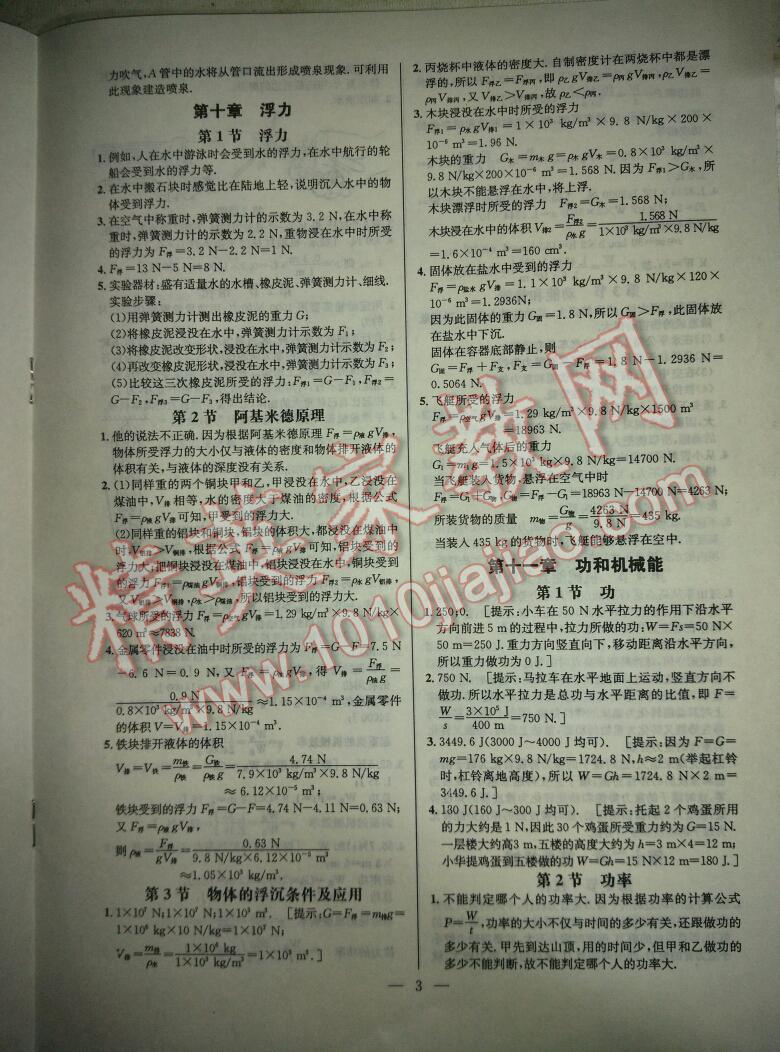 力吹气,A管中的水将从管口流出形成喷泉现象.可利用
此现象建造喷泉.
第十章 浮力
第1节 浮力
1.例如,人在水中游泳时会受到水的浮力,在水中航行的轮
船会受到水的浮力等.
2.在水中搬石块时感觉比在陆地上轻,说明沉入水中的物
体受到浮力.
3.在空气中称重时,弹簧测力计的示数为3.2 N,在水中称
重时,弹簧测力计的示数为2.2 N,重物浸在水中时所受
的浮力为F浮=3.2 N-2.2 N=1 N.
4.F浮=13 N-5 N=8 N.
5.实验器材:盛有适量水的水槽、橡皮泥、弹簧测力计、细线.
实验步骤:
(1)用弹簧测力计测出橡皮泥的重力G;
(2)将橡皮泥浸没在水中,弹簧测力计示数为F₁;
(3)将橡皮泥改变形状,浸没在水中,弹簧测力计示数为F₂;
(4)再改变橡皮泥形状,浸没在水中,弹簧测力计示数为F₃;
(5)比较这三次橡皮泥所受的浮力:F浮1=G-F₁,F浮2=
G-F₂,F浮3=G-F₃,得出结论.
第2节 阿基米德原理
1.他的说法不正确.因为根据阿基米德原理F浮=ρ液gV排,
物体所受浮力的大小仅与液体的密度和物体排开液体的
体积有关,与液体的深度没有关系.
2.(1)同样重的两个铜块甲和乙,甲浸没在水中,乙浸没在
煤油中,V排相等,水的密度大于煤油的密度,根据公式
F浮=ρ液gV排可知,甲受到的浮力大.
(2)同样重的铝块和铜块,铝块的体积大,都浸没在煤油中
时,V铝排>V铜排,根据公式F浮=ρ液gV排可知,铝块受到的
浮力大;把铜块浸没在煤油中,铝块浸没在水中,铜块受到
的浮力F浮=ρ煤油gV铜排,铝块受到的浮力F浮=ρ水gV铝排,
V铝排>V铜排,ρ水>ρ煤油,所以铝块受到的浮力大.
3.气球所受的浮力F浮=ρ空气gV排=1.29 kg/m³×9.8 N/kg×
620 m³≈7838 N.
4.金属零件浸没在油中时所受的浮力为F浮=G-F=7.5 N
-6.6 N=0.9 N,又F浮=ρ油gV排,得V排=F浮/ρ油g=
0.9 N/0.8×10³ kg/m³×9.8 N/kg≈1.15×10⁻⁴ m³,金属零件
的体积V=V排=1.15×10⁻⁴ m³.
5.铁块排开液体的体积
V排=V铁=m铁/ρ铁=G铁/ρ铁g=4.74 N/7.9×10³ kg/m³×9.8 N/kg
≈6.12×10⁻⁵ m³;
铁块受到的浮力F浮=G-F=4.74 N-4.11 N=0.63 N;
又F浮=ρ液gV排,
则ρ液=F浮/gV排=0.63 N/9.8 N/kg×6.12×10⁻⁵ m³
≈1.05×10³ kg/m³.
第3节 物体的浮沉条件及应用
1.1×10⁷ N;1×10⁷ N;1×10³ m³. [提示:G=F浮=m排g=
1×10⁶ kg×10 N/kg=1×10⁷ N;
V排=m排/ρ水=1×10⁶ kg/1×10³ kg/m³=1×10³ m³.]
2.丙烧杯中液体的密度大.自制密度计在两烧杯中都是漂
浮的,所以F浮乙=F浮丙,即ρ乙gV排乙=ρ丙gV排丙,ρ乙V排乙=
ρ丙V排丙,又V排乙>V排丙,故ρ乙<ρ丙.
3.木块浸没在水中时所受的浮力
F浮1=ρ水gV排1=1×10³ kg/m³×9.8 N/kg×200×
10⁻⁶ m³=1.96 N.
木块的重力 G木=m木g=ρ木gV木=0.8×10³ kg/m³×
9.8 N/kg×200×10⁻⁶ m³=1.568 N.因为F浮1>G木,所
以木块不能悬浮在水中,将上浮.
木块漂浮时所受的浮力 F浮2=G木=1.568 N;
木块浸在水中的体积V排2=F浮2/ρ水g=1.568 N/1×10³ kg/m³×9.8 N/kg
=1.6×10⁻⁴ m³=160 cm³.
4.固体放在盐水中受到的浮力
F浮=ρ盐水gV排=1.1×10³ kg/m³×9.8 N/kg×120×
10⁻⁶ m³=1.2936N;
因为此固体的重力G固=1.8 N,所以G固>F浮,此固体放
在盐水中下沉.
固体在容器底部静止,则
G固=F浮+F支,F支=G固-F浮=1.8 N-1.2936 N=
0.5064 N.
5.飞艇所受的浮力
F浮=ρ空气gV排=1.29 kg/m³×9.8 N/kg×1500 m³
=18963 N.
飞艇充入气体后的重力
G₁=m₁g=1.5×10³ kg×9.8 N/kg=14700 N.
当飞艇装入货物,悬浮在空气中时
F浮=G₁+G物,G物=F浮-G₁=18963 N-14700 N=4263 N;
所装货物的质量 m物=G物/g=4263 N/9.8 N=435 kg.
当装入435 kg的货物时,飞艇能够悬浮在空中.
第十一章 功和机械能
第1节 功
1.250;0. [提示:小车在50 N水平拉力的作用下沿水平
方向前进5 m的过程中,拉力所做的功:W=Fs=50 N×
50 m=250 J.重力方向竖直向下,移动距离沿水平方向,
所以重力做功为0 J.]
2.750 N. [提示:马拉车在水平地面上运动,竖直方向不
做功.所以水平拉力是总功与水平距离的比值,即F=
W/s=3×10⁵ J/400 m=750 N.]
3.3449.6 J(3000 J~4000 J均可). [提示:因为F=G=
mg=176 kg×9.8 N/kg=1724.8 N,h≈2 m(举起杠铃
时,杠铃离地高度),所以W=Gh=1724.8 N×2 m=
3449.6 J.]
4.180 J(160 J~300 J均可). [提示:托起2个鸡蛋所用
的力大约是1 N,因此30个鸡蛋所受重力约为G=15 N.
一层楼大约高3 m,五楼的高度大约为h=3 m×4=12 m;
小华提鸡蛋到五楼做的功W=Gh=15 N×12 m=180 J.]
第2节 功率
1.不能判定哪个人的功率大.因为根据功率的计算公式
P=W/t,功率的大小不仅与时间的多少有关,还跟做功的
多少有关.甲先到达山顶,用的时间少,但甲和乙做功的
多少不能判断,故不能判定哪个人的功率大.
— 3 —
精英家教网
www.1010jiajiao.com